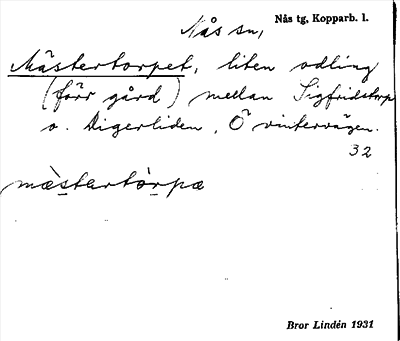 Nås sn, Nås tg, Kopparb. l.
Mästertorpet, liten odling
(förr gård) mellan Sigfridstorp
o. Digerliden, Ö vintervägen.
32
mæ̀stertòrpæ
Bror Lindén 1931